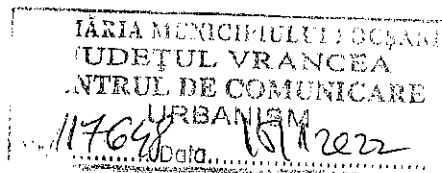 MĂRIA MUNICIPIULUI FOCȘANI
UDEȚUL VRANCEA
NTRUL DE COMUNICARE
URBANISM
Data 2022